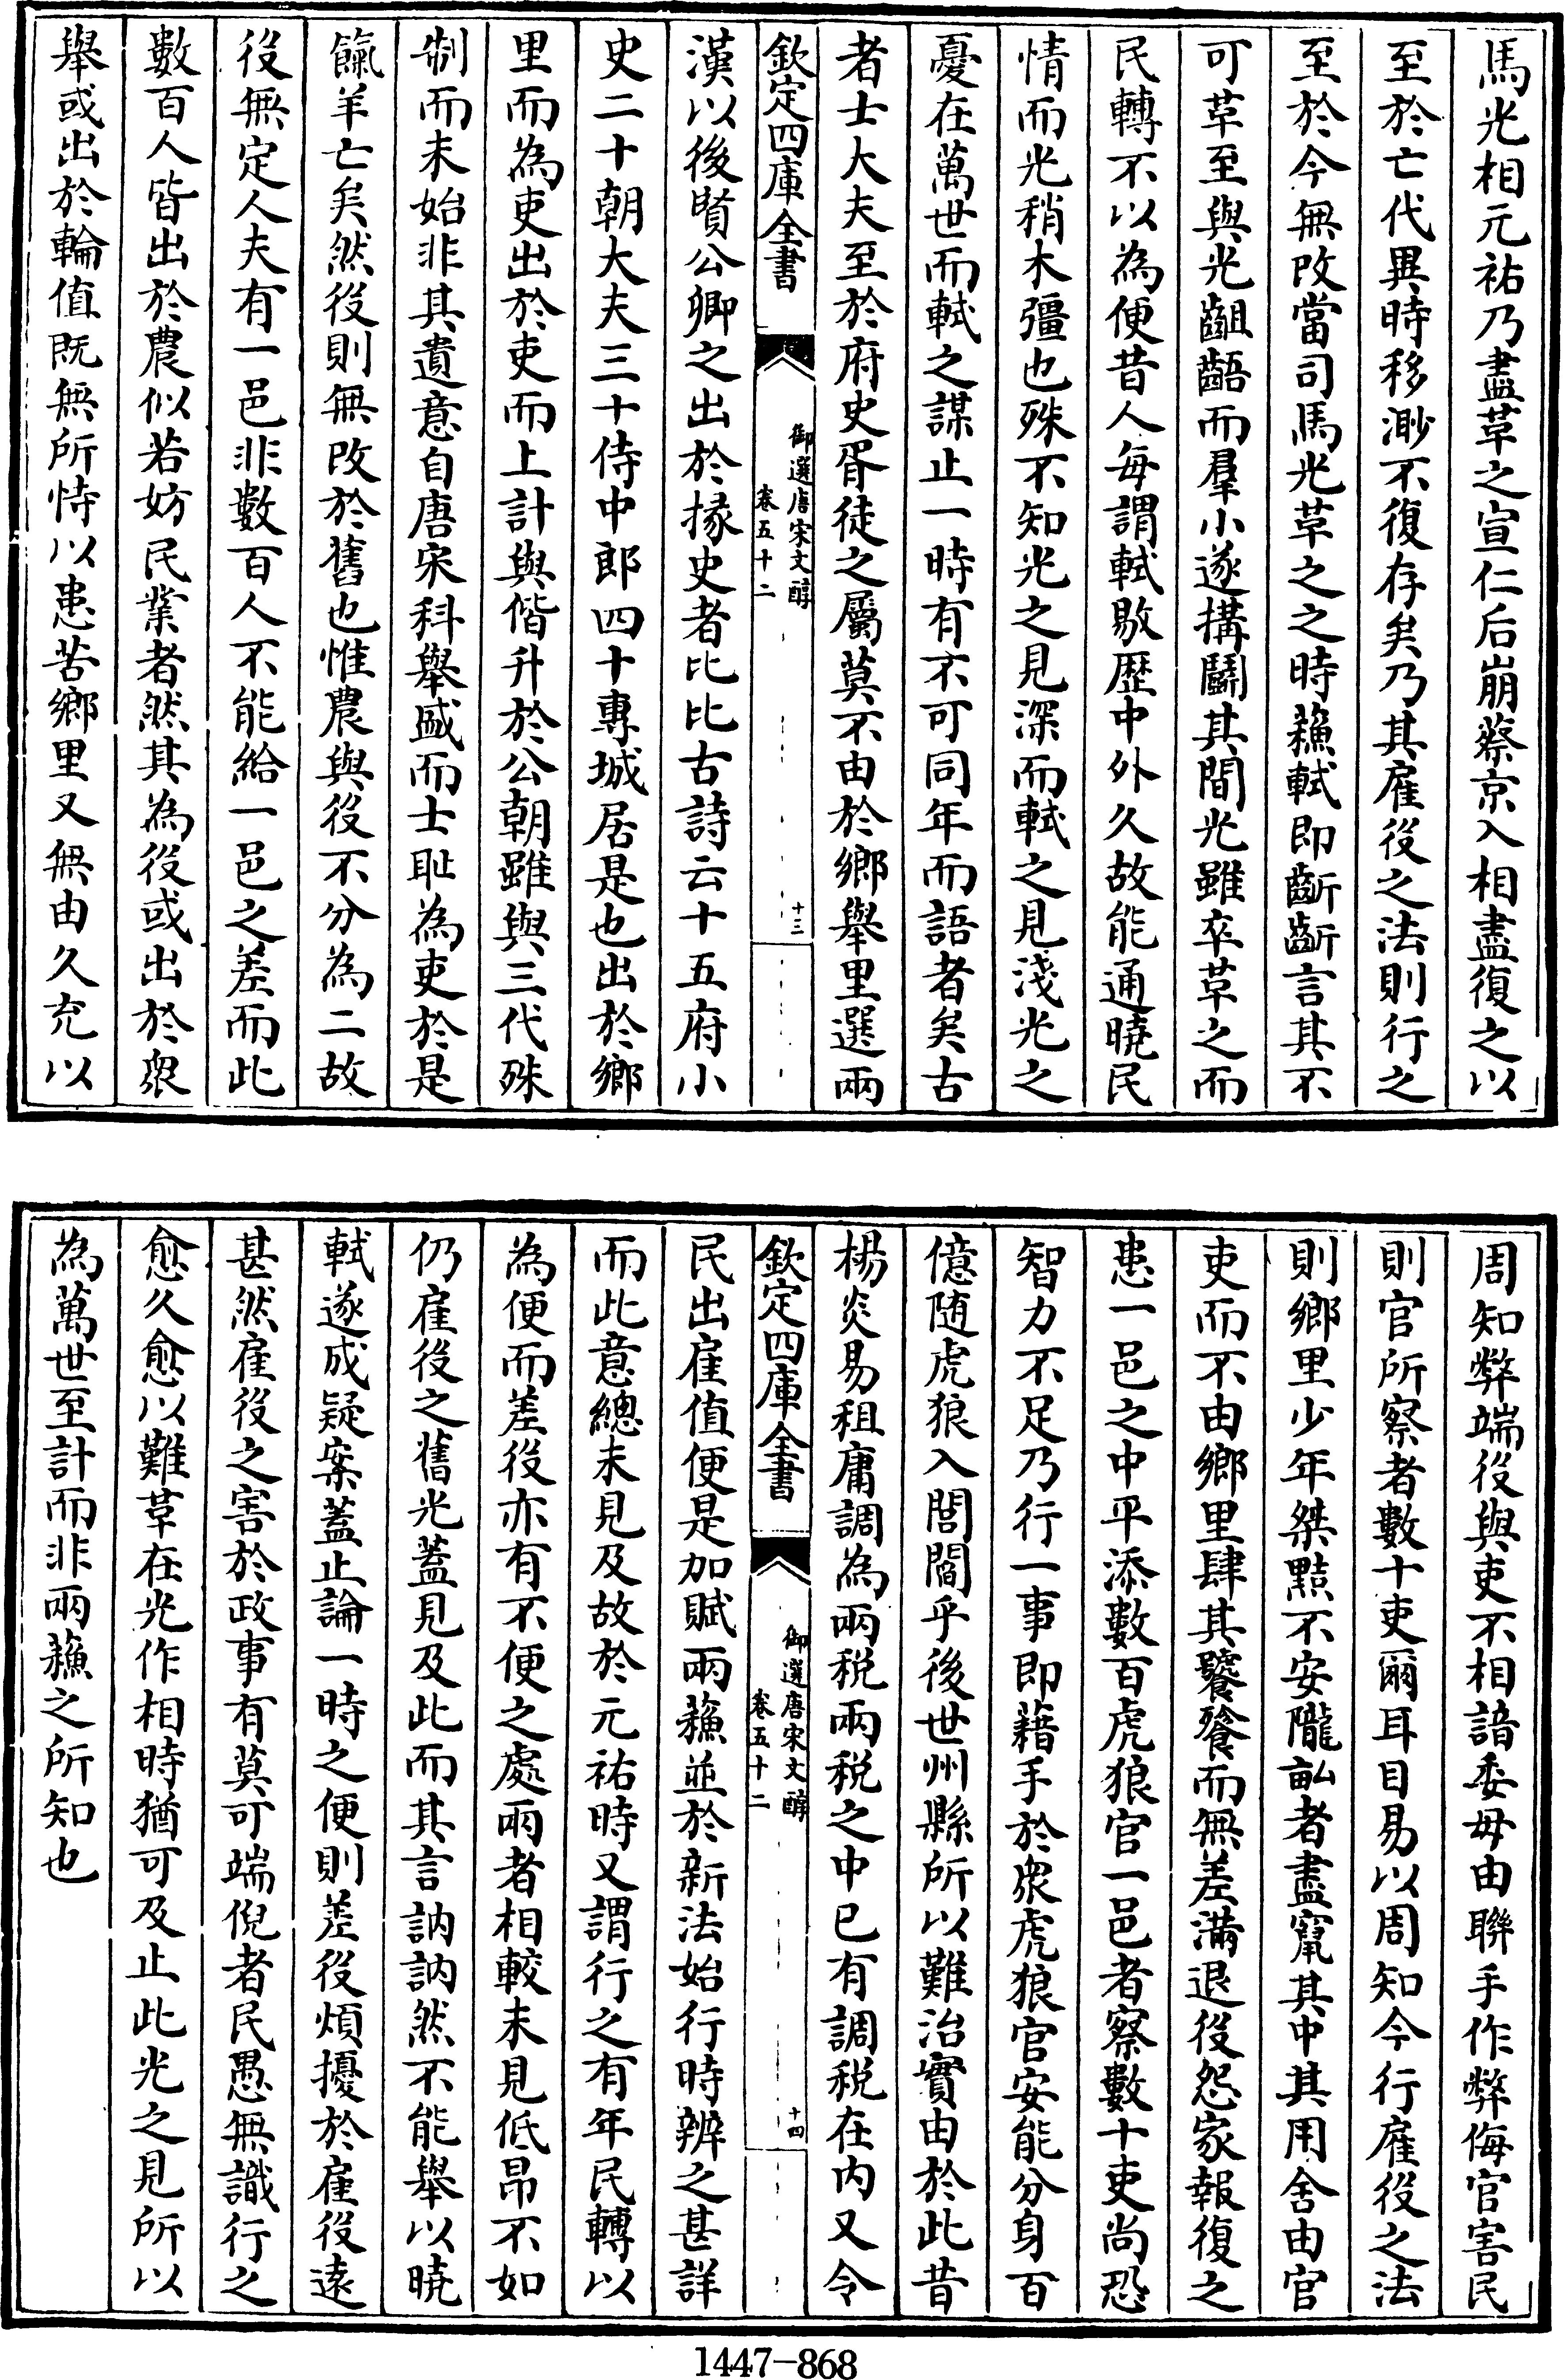 馬光相元祐乃盡革之宣仁后崩蔡京入相盡復之以
至於亡代異時移渺不復存矣乃其雇役之法則行之
至於今無改當司馬光革之之時蘓軾即齗齗言其不
可革至與光齟齬而羣小遂搆鬭其間光雖卒革之而
民轉不以為便昔人每謂軾敭歴中外久故能通曉民
情而光稍木彊也殊不知光之見深而軾之見淺光之
憂在萬世而軾之謀止一時有不可同年而語者矣古
者士大夫至於府史胥徒之屬莫不由於鄉舉里選兩
欽定四庫全書
御選唐宋文醇
卷五十二
十三
漢以後賢公卿之出於掾史者比比古詩云十五府小
史二十朝大夫三十侍中郎四十專城居是也出於鄉
里而為吏出於吏而上計與偕升於公朝雖與三代殊
制而未始非其遺意自唐宋科舉盛而士耻為吏於是
餼羊亡矣然役則無改於舊也惟農與役不分為二故
役無定人夫有一邑非數百人不能給一邑之差而此
數百人皆出於農似若妨民業者然其為役或出於衆
舉或出於輪值既無所恃以患苦鄉里又無由久充以
周知弊端役與吏不相諳委毋由聯手作弊侮官害民
則官所察者數十吏爾耳目易以周知今行雇役之法
則鄉里少年桀黠不安隴畝者盡竄其中其用舍由官
吏而不由鄉里肆其饕餮而無差滿退役怨家報復之
患一邑之中平添數百虎狼官一邑者察數十吏尚恐
智力不足乃行一事即藉手於衆虎狼官安能分身百
億随虎狼入閭閻乎後世州縣所以難治實由於此昔
楊炎易租庸調為兩税兩税之中已有調税在内又令
欽定四庫全書
御選唐宋文醇
卷五十二
十四
民出雇值便是加賦兩蘓並於新法始行時辨之甚詳
而此意總未見及故於元祐時又謂行之有年民轉以
為便而差役亦有不便之處兩者相較未見低昂不如
仍雇役之舊光蓋見及此而其言訥訥然不能舉以曉
軾遂成疑案蓋止論一時之便則差役煩擾於雇役遠
甚然雇役之害於政事有莫可端倪者民愚無識行之
愈久愈以難革在光作相時猶可及止此光之見所以
為萬世至計而非兩蘓之所知也
1447-868